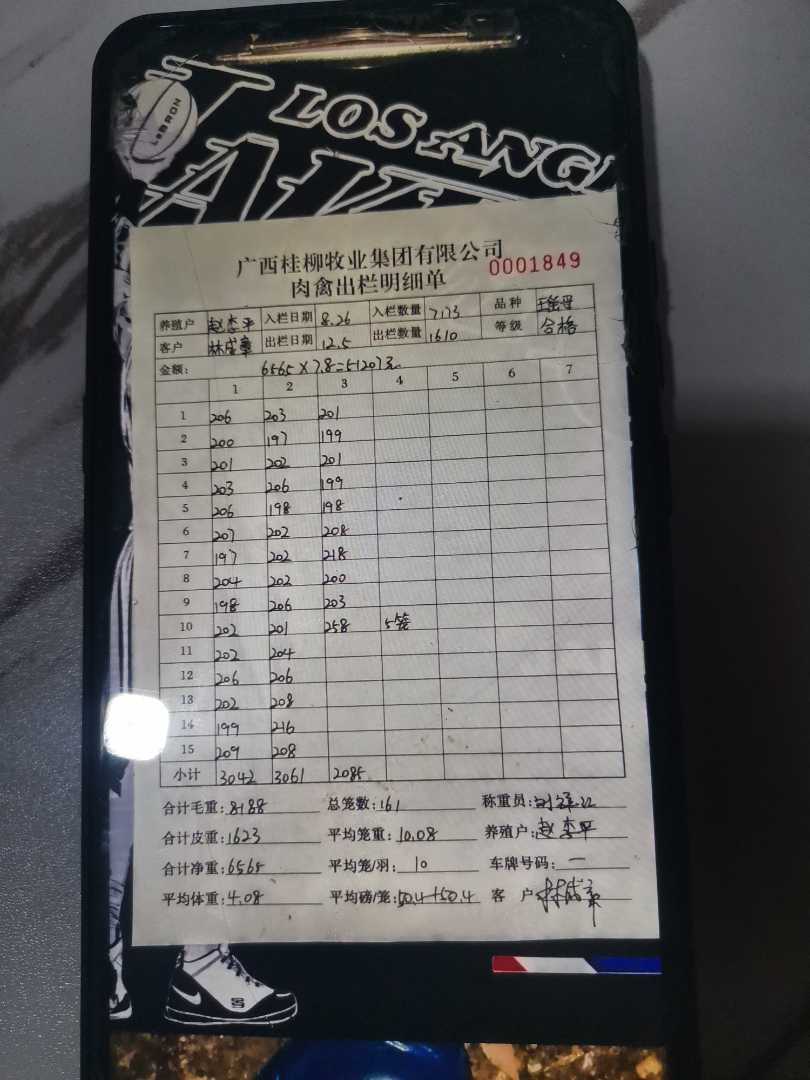 LEBRON
LOS ANG
广西桂柳牧业集团有限公司
肉禽出栏明细单 0001849
养殖户 赵李平 入栏日期 8.26 入栏数量 7173 品种
客户 林成章 出栏日期 12.5 出栏数量 1610 等级 合格
金额: 6565×7.8=51207元
1 2 3 4 5 6 7
1 206 203 201
2 200 197 199
3 201 202 201
4 203 206 199
5 206 198 198
6 207 202 208
7 197 202 218
8 204 202 200
9 198 206 203
10 202 201 258 5笼
11 202 204
12 206 206
13 202 208
14 199 216
15 209 208
小计 3042 3061 2085
合计毛重:8188 总笼数:161 称重员:
合计皮重:1623 平均笼重:10.08 养殖户:赵李平
合计净重:6565 平均笼/羽:10 车牌号码:一
平均体重:4.08 平均磅/笼:50.4+50.4 客户 林成章